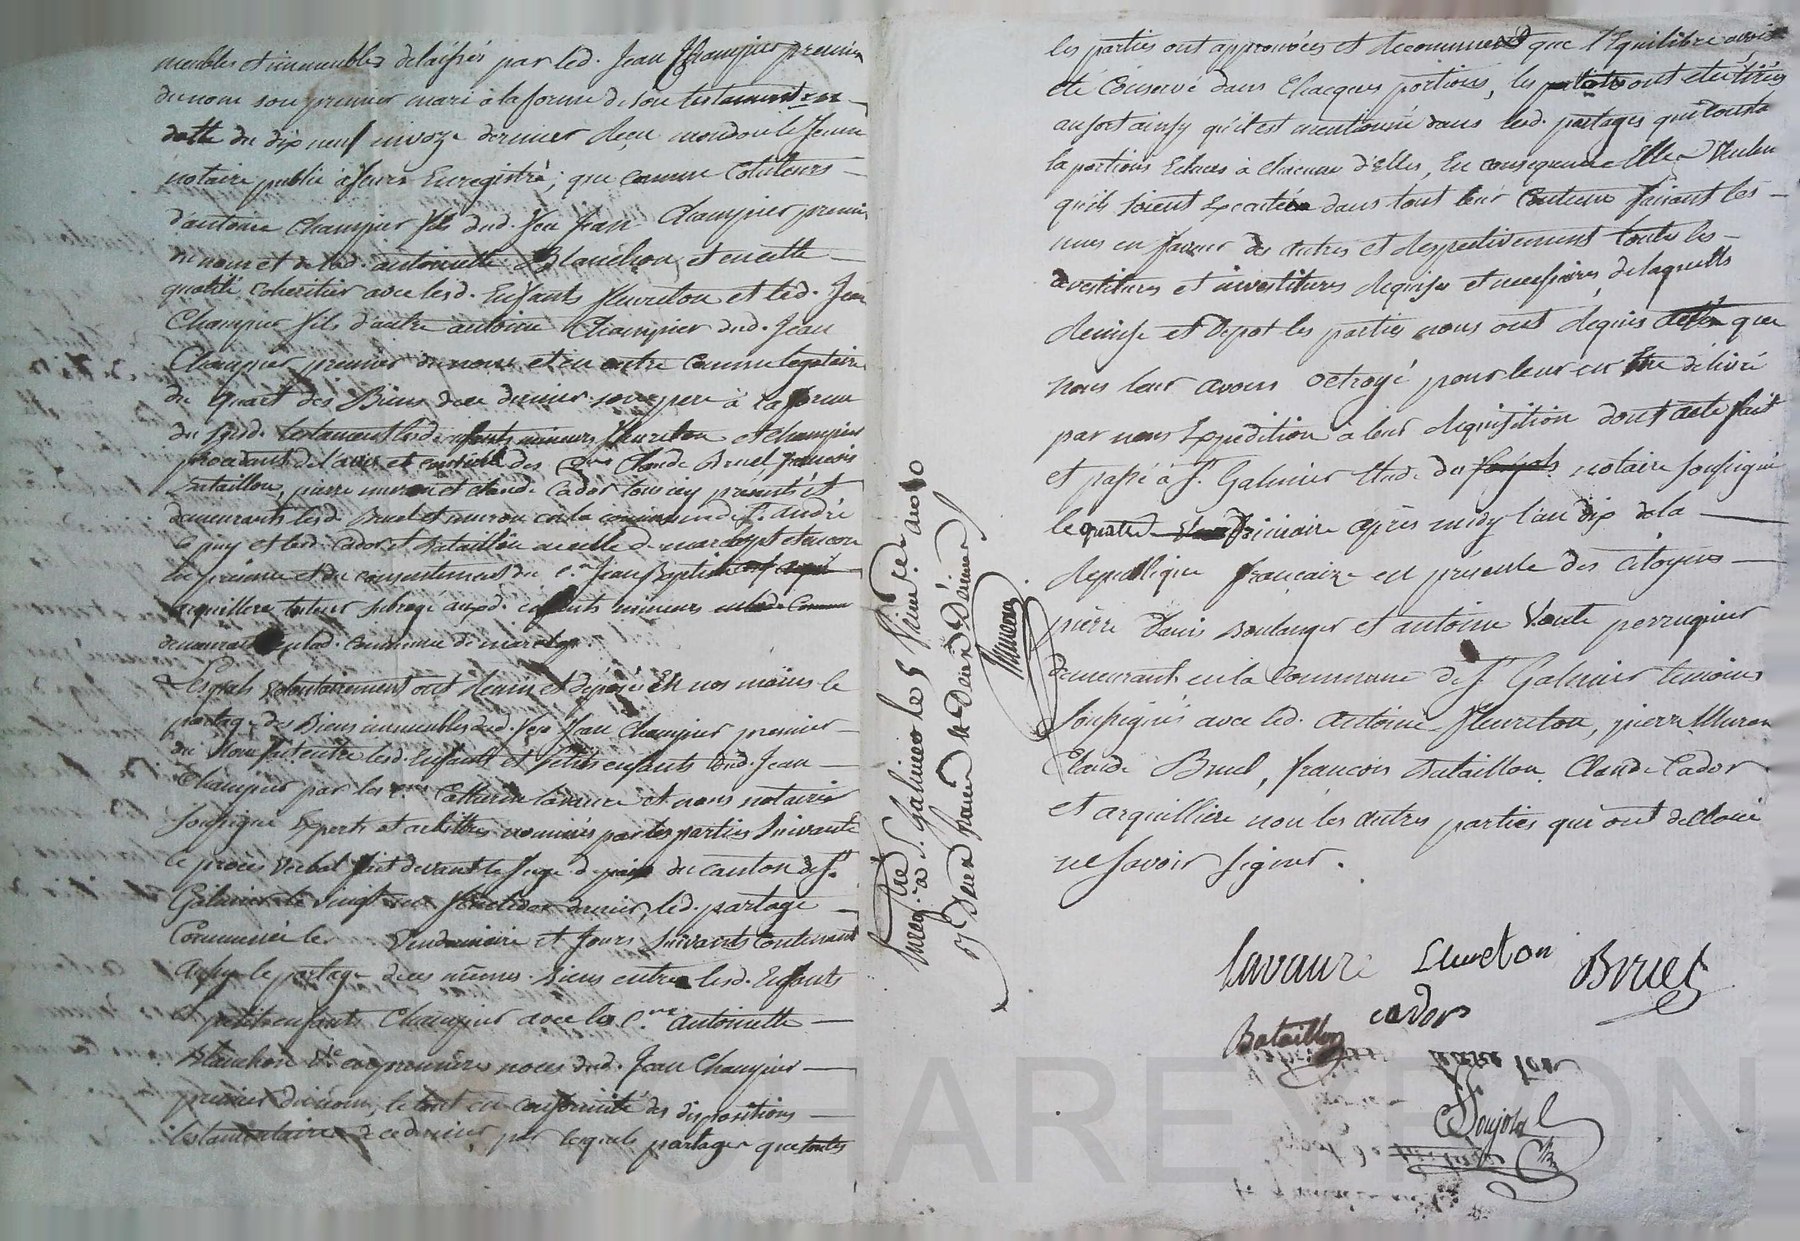 meubles et immeubles delaissés par led. Jean Champier premier
du nom son premier mari à la forme de son testament en
datte du dix neuf nivoze dernier reçu mondon le Jeune
notaire public à feurs Enregistré; que comme Cotuteurs
d'antoine Champier fils dud. feu Jean Champier premier
du nom et de lad. antoinette Blanchon et en cette
qualité coheritier avec lesd. Enfants fleureton et led. Jean
Champier fils d'autre antoine Champier dud. Jean
Champier premier du nom et en outre comme legataire
du quart des Biens de ce dernier son pere à la forme
du Susd. testament lesd. enfants mineurs fleureton et Champier
procedant de l'avis et conseil des Claude Bruel, françois
Bataillon, pierre muron et claude Cador tous icy présents et
demeurants lesd. Bruel et muron en la commune de S.t andré
le puy et lesd. Cador et Bataillon en celle de marcoux et encore
en présence et du consentement du C.n Jean Baptiste
arquillere tuteur subrogé auxd. enfants mineurs
demeurant en lad. commune de
Lesquels volontairement ont remis et déposé En nos mains le
partage des Biens immeubles dud. feu Jean Champier premier
du Nom fait entre lesd. Enfants et Petits enfants dud. Jean
Champier par les Catherin lavaure et nous notaire
soussigné Experts et arbitres nommés par les parties Suivant
le procès Verbal fait devant le Juge de paix du canton de S.t
Galmier le vingt fructidor dernier, led. partage
Commencé le Vendemiaire et Jours Suivants contenant
aussy le partage de ces mêmes Biens entre lesd. Enfants
et petits enfants Champier avec la C.ne Antoinette
Blanchon V.e en premieres noces dud. Jean Champier
premier du nom, le tout en conformité des dispositions
testamentaires de ce dernier par lesquels partages que toutes
Enreg.tré à S.t Galmier le 5 frimaire an 10
Reçu franc
Muron
les parties ont approuvées et reconnues que l'Equilibre avoit
été Conservé dans Chacques portions, les ont été tirées
au sort ainsy qu'il est mentionné dans lesd. partages qui consta
la portions Echues à Chacune d'Elles, En consequence Elles Veulen
qu'ils soient Executés dans tout leur Contenu faisant les
unes en faveur des autres et respectivement toutes les
devestitures et investitures requises et necessaires, de laquelle
remise et Depot les parties nous ont requis acte que
nous leur avons octroyé pour leur en Etre délivré
par nous Expedition à leur requisition dont acte fait
et passé à S.t Galmier Etude de Soujols notaire soussigné
le quatre frimaire après midy l'an dix de la
République françaize en présence des Citoyens
pierre Denis Boulanger et antoine Voute perruquier
demeurant en la Commune de S.t Galmier temoins
soussignés avec led. Antoine fleureton, pierre Muron
Claude Bruel, françois Bataillon, Claude Cador
et arquilliere non les autres parties qui ont declaré
ne savoir signer.
Lavaure fleureton Bruel
Bataillon cador
Soujols
CHAREYRON